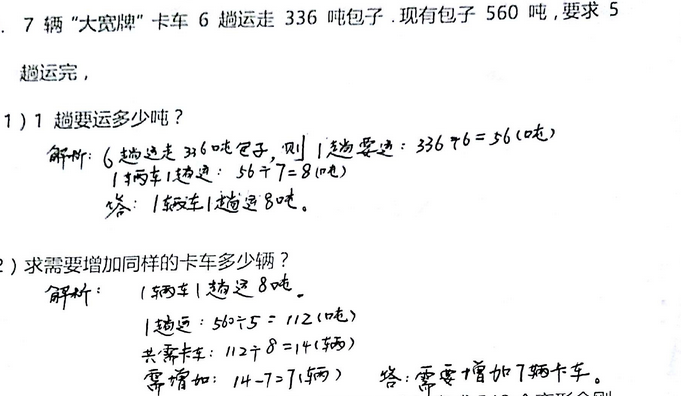 . 7 辆“大宽牌”卡车 6 趟运走 336 吨包子.现有包子 560 吨,要求 5
趟运完,
1)1 趟要运多少吨?
解析: 6趟运走 336吨包子,则1趟要运: 336÷6=56(吨)
1辆车1趟运: 56÷7=8(吨)
答: 1辆车1趟运8吨。
2)求需要增加同样的卡车多少辆?
解析: 1辆车1趟运8吨。
1趟运: 560÷5=112(吨)
共需卡车: 112÷8=14(辆)
需增加: 14-7=7(辆) 答:需要增加7辆卡车。